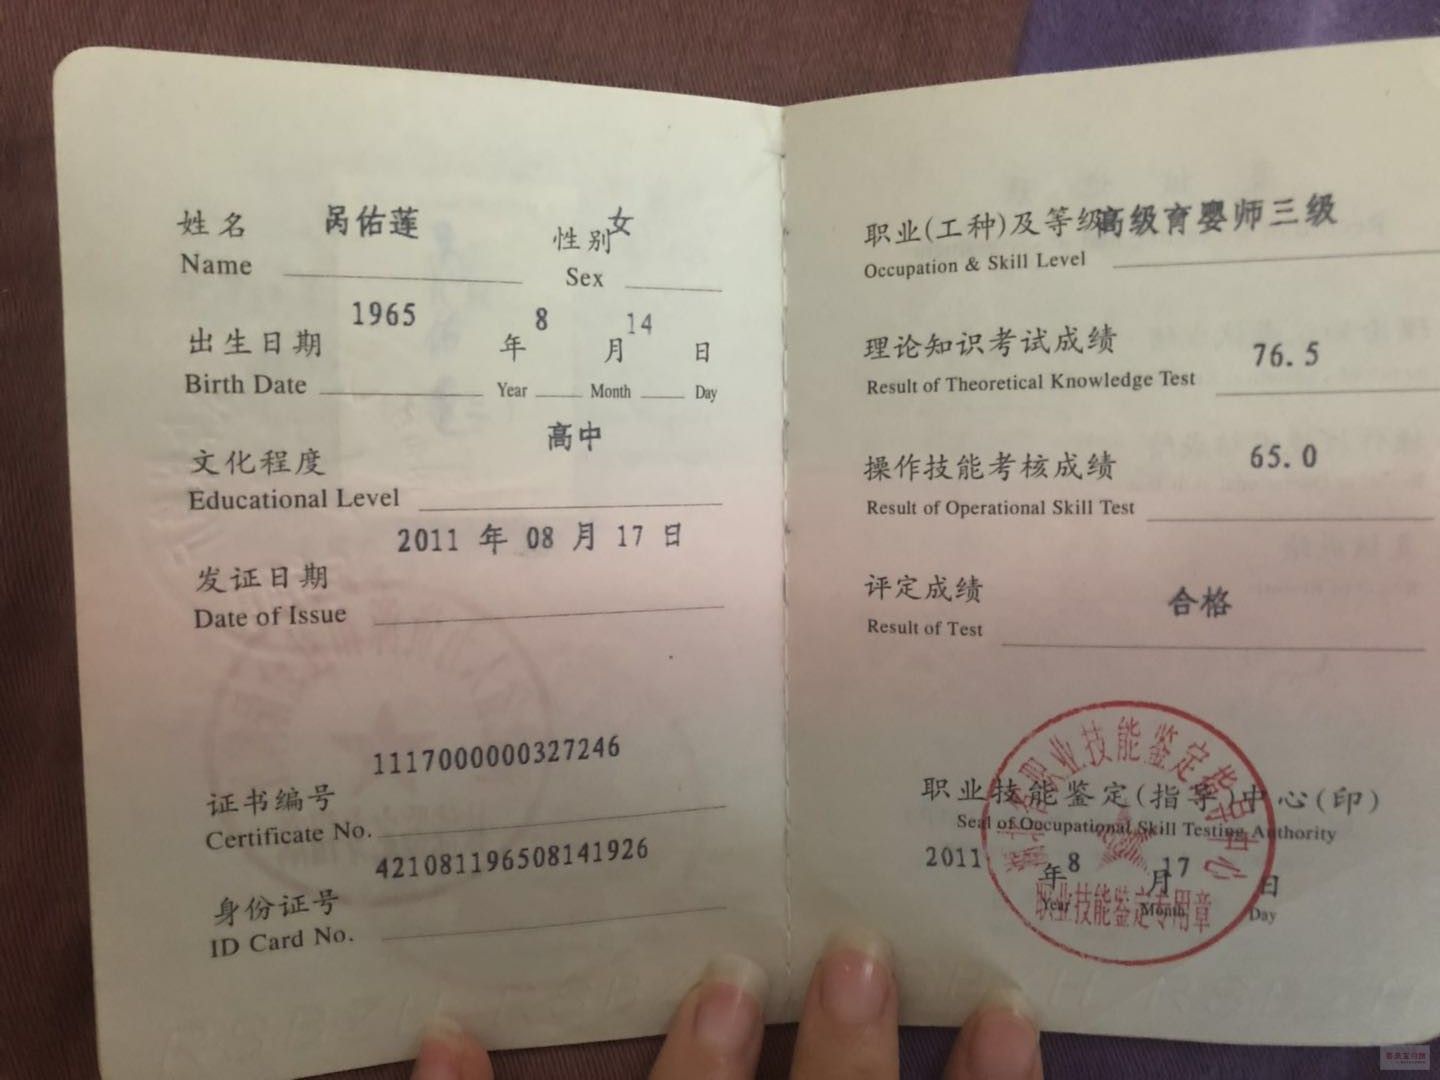 姓名 呙佑莲 性别 女
Name Sex
出生日期 1965 年 8 月 14 日
Birth Date Year Month Day
文化程度 高中
Educational Level
发证日期 2011 年 08 月 17 日
Date of Issue
证书编号 1117000000327246
Certificate No.
身份证号 421081196508141926
ID Card No.
职业(工种)及等级 高级育婴师三级
Occupation & Skill Level
理论知识考试成绩 76.5
Result of Theoretical Knowledge Test
操作技能考核成绩 65.0
Result of Operational Skill Test
评定成绩 合格
Result of Test
职业技能鉴定(指导)中心(印)
Seal of Occupational Skill Testing Authority
2011 年 8 月 17 日
Year Month Day
职业技能鉴定指导中心
职业技能鉴定专用章